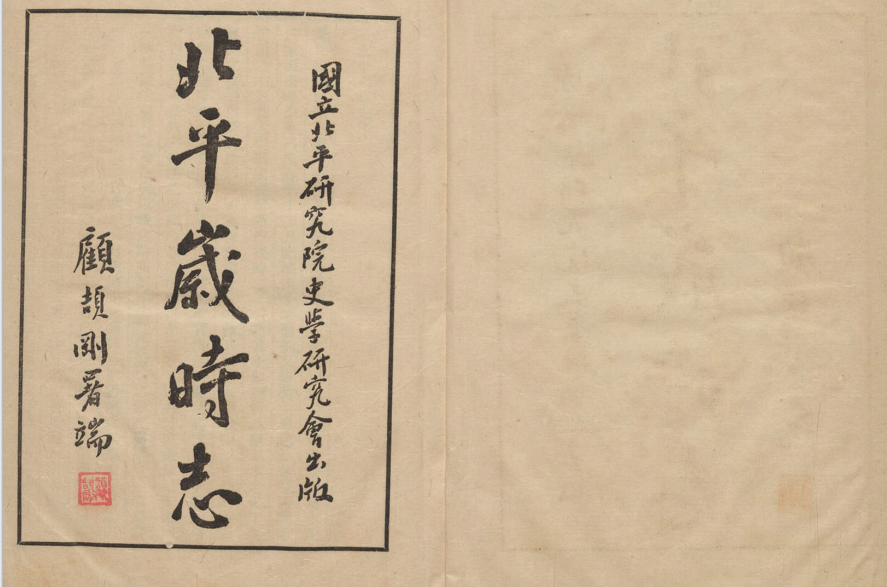 國立北平研究院史學研究會出版
北平歲時志
顧頡剛署端